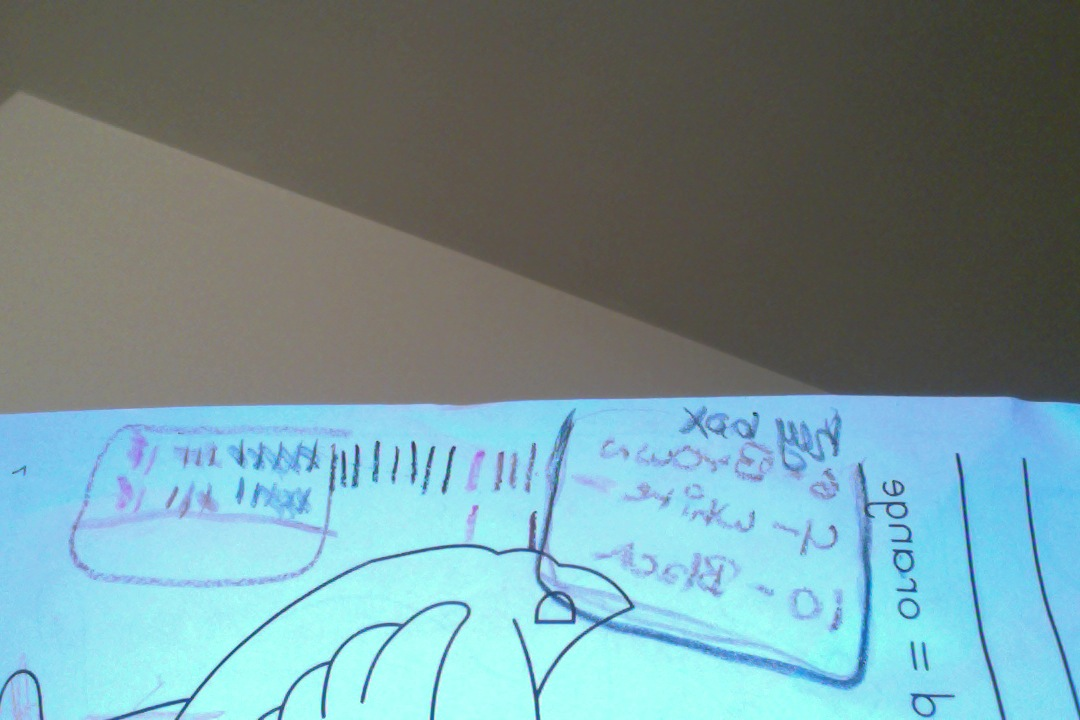 Key box
8 Brown
4 - white -
10 - Black
= orange